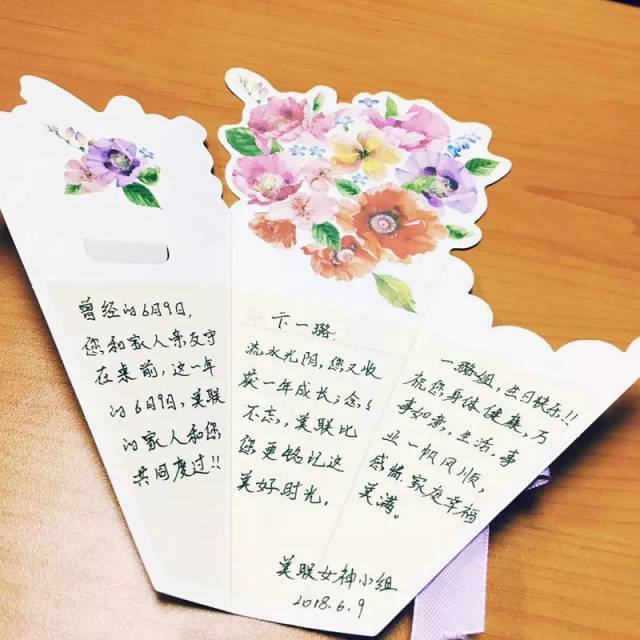 曾经的6月9日,
您和家人亲友守
在桌前,这一年
的6月9日,美联
的家人和您
共同度过!!
卞一璐
流水光阴,您又收
获一年成长;念念
不忘,美联比
您更铭记这
美好时光.
一璐姐,生日快乐!!
祝您身体健康,万
事如意,生活,事
业一帆风顺,
感情、家庭幸福
美满。
美联女神小组
2018.6.9